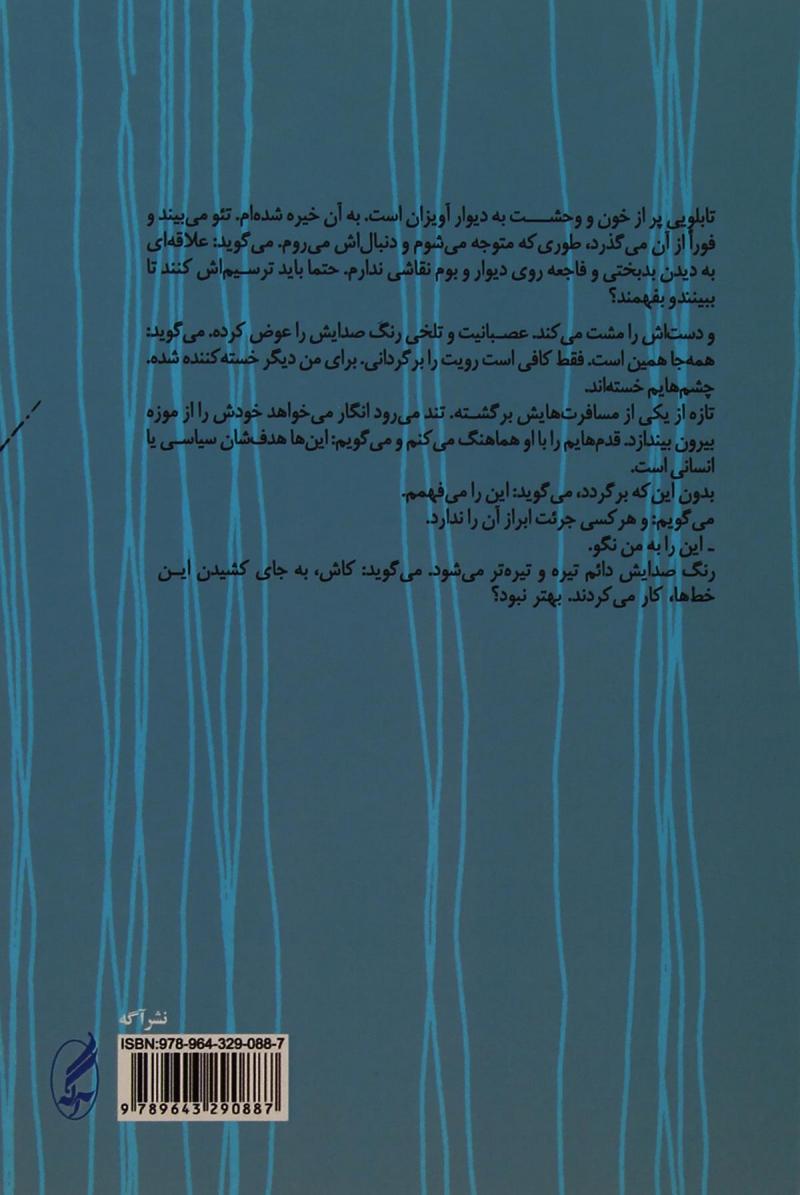 تابلویی پر از خون و وحشت به دیوار آویزان است. به آن خیره شده‌ام. تئو می‌بیند و
فوراً از آن می‌گذرد، طوری‌که متوجه می‌شوم و دنبال‌اش می‌روم. می‌گوید: علاقه‌ای
به دیدن بدبختی و فاجعه روی دیوار و بوم نقاشی ندارم. حتما باید ترسیم‌اش کنند تا
ببینند و بفهمند؟
و دست‌اش را مشت می‌کند. عصبانیت و تلخی رنگ صدایش را عوض کرده. می‌گوید:
همه‌جا همین است. فقط کافی است رویت را برگردانی. برای من دیگر خسته‌کننده شده.
چشم‌هایم خسته‌اند.
تازه از یکی از مسافرت‌هایش برگشته. تند می‌رود انگار می‌خواهد خودش را از موزه
بیرون بیندازد. قدم‌هایم را با او هماهنگ می‌کنم و می‌گویم: این‌ها هدف‌شان سیاسی یا
انسانی است.
بدون این‌که برگردد، می‌گوید: این را می‌فهمم.
می‌گویم: و هرکسی جرئت ابراز آن را ندارد.
ـ این را به من نگو.
رنگ صدایش دائم تیره و تیره‌تر می‌شود. می‌گوید: کاش، به جای کشیدن این
خط‌ها، کار می‌کردند. بهتر نبود؟
نشر آگه
ISBN:978-964-329-088-7
آگه
9 789643 290887